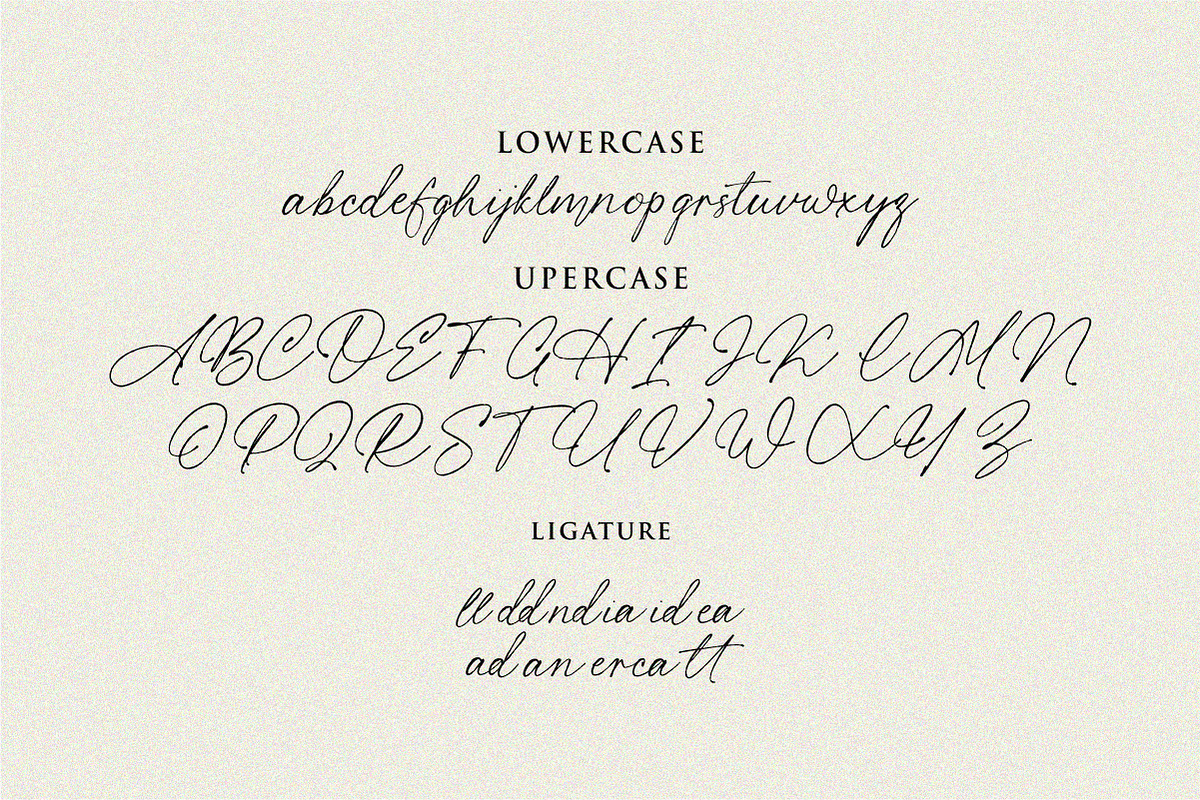 LOWERCASE
abcdefghijklmnopqrstuvwxyz
UPERCASE
ABCDEFGHIJK LMN
OPQRSTUVWXYZ
LIGATURE
ll dd nd ia id ea
ad an er ca tt